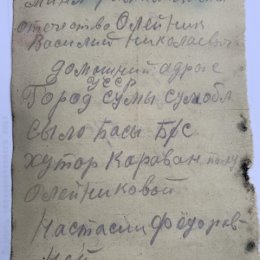 отечество Олейник
Василий Николаевич
домошний адрыс
УССР
Город Сумы Сумобл
сыло Басы Б/с
хутор Караван
Олейниковой
Настасии Фёдоров-
ной